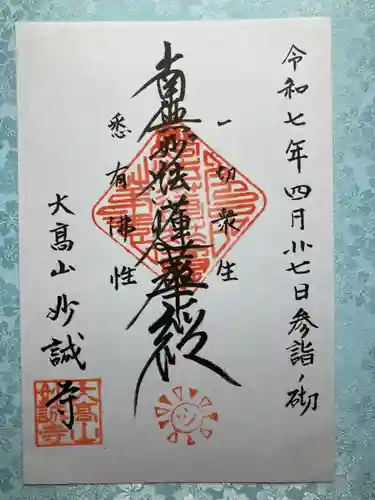 令和七年四月廿七日参詣ノ砌
一切衆生
南無妙法蓮華経
悉有佛性
大髙山妙諴寺
大高山
妙諴寺